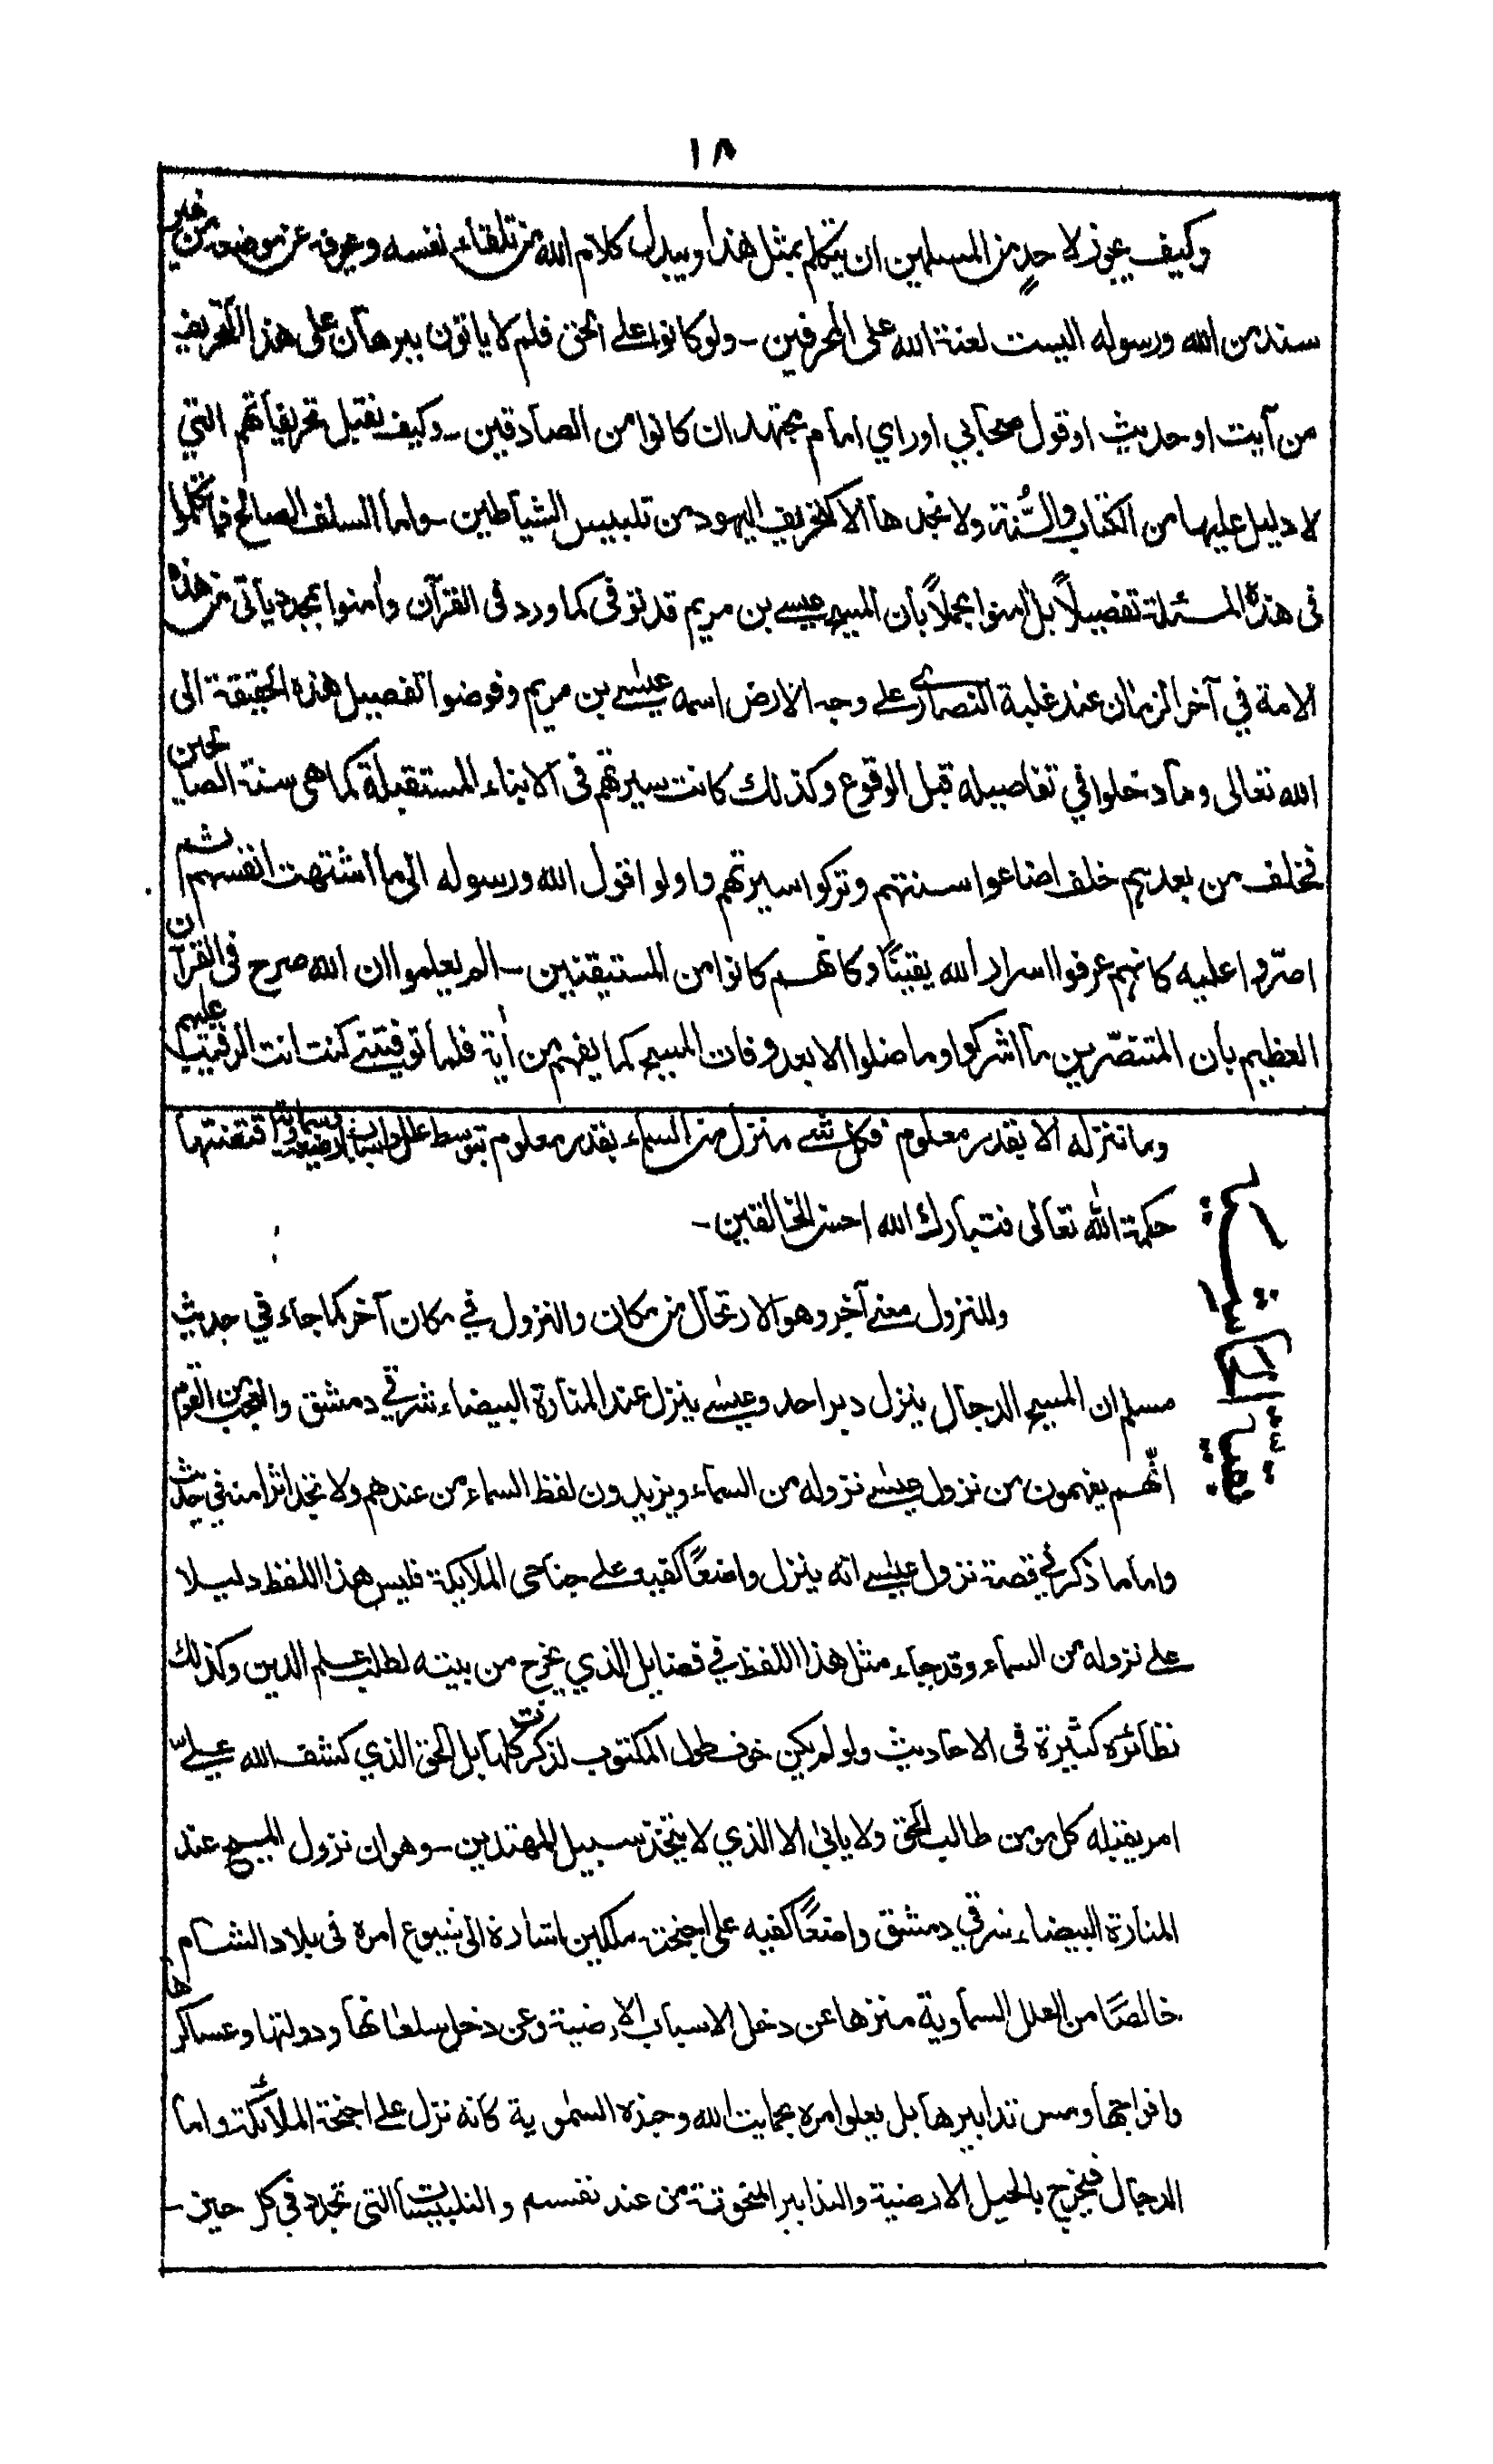 ١٨
وكيف يجوز لاحدٍ من المسلمين ان يتكلم بمثل هذا ويبدل كلام الله من تلقاء نفسه ويحرفه عن موضعه من غير
سند من الله ورسوله اليست لعنة الله على المحرفين - ولو كانوا على الحق فلم لا ياتون ببرهان على هذا التحريف
من آيت او حديث او قول صحابي او راي امام مجتهد ان كانوا من الصادقين - وكيف نقبل تحريفاتهم التي
لا دليل عليها من الكتاب والسُّنة ولا نجدها الا كتحريف اليهود من تلبيس الشياطين - واما السلف الصالح فما تكلموا
فى هذه المسئلة تفصيلاً بل اٰمنوا مجملاً بان المسيح عيسے بن مريم قد توفى كما ورد فى القرآن واٰمنوا بمجدد ياتى من هذه
الامة في آخر الزمان عند غلبة النصارى على وجه الارض اسمه عيسٰے بن مريم وفوضوا تفصيل هذه الحقيقة الى
الله تعالى وما دخلوا في تفاصيله قبل الوقوع وكذلك كانت سيرتهم فى الانباء المستقبلة كما هى سنة الصالحين
فخلف من بعدهم خلف اضاعوا سنتهم وتركوا سيرتهم واولوا قول الله ورسوله الى ما اشتهت انفسهم ثم
اصرّوا عليه كانهم عرفوا اسرار الله يقينًا وكانهم كانوا من المستيقنين - الم يعلموا ان الله صرح فى القرآن
العظيم بان المتنصّرين ما اشركوا وما ضلوا الا بعد وفات المسيح كما يفهم من اٰية فلما توفيتنے كنت انت الرقيب عليهم
وما ننزله الا بقدر معلوم فكل شے منزل من السماء بقدر معلوم بتوسط علل واسباب ارضية وسماوية اقتضتها
حكمة الله تعالى فتبارك الله احسن الخالقين -
وللنزول معنے آخر وهو الارتحال من مكان والنزول في مكان آخر كما جاء في حديث
مسلم ان المسيح الدجال ينزل دبر احد وعيسٰے ينزل عند المنارة البيضاء شرقي دمشق والعجب من القوم
انّهم يفهمون من نزول عيسٰے نزوله من السماء ويزيدون لفظ السماء من عندهم ولا تجد اثرا منه في حديث
واما ما ذكر في قصة نزول عيسٰے انه ينزل واضعًا كفيه على جناحى الملايكة فليس هذا اللفظ دليلا
على نزوله من السماء وقد جاء مثل هذا اللفظ في فضايل الذي يخرج من بيته لطلب علم الدين وكذلك
نظائره كثيرة فى الاحاديث ولو لم يكن خوف طول المكتوب لذكرت كلها بل الحق الذي كشف الله علىّ
امر يقبله كل مومن طالب الحق ولا يابى الا الذي لا يتخذ سبيل المهتدين - وهو ان نزول المسيح عند
المنارة البيضاء شرقي دمشق واضعًا كفيه على اجنحة ملكين اشارة الى شيوع امره فى بلاد الشام
خالصًا من العلل السماوية منزها عن دخل الاسباب الارضية وعن دخل سلطانها ودولتها وعساكرها
وافواجها ومس تدابيرها بل يعلو امره بحمايت الله وجنده السمٰوية كانه نزل على اجنحة الملائكة واما
الدجال فيخرج بالحيل الارضية والتدابير المنحوتة من عند نفسه والتلبيسات التى تجدد في كل حين -